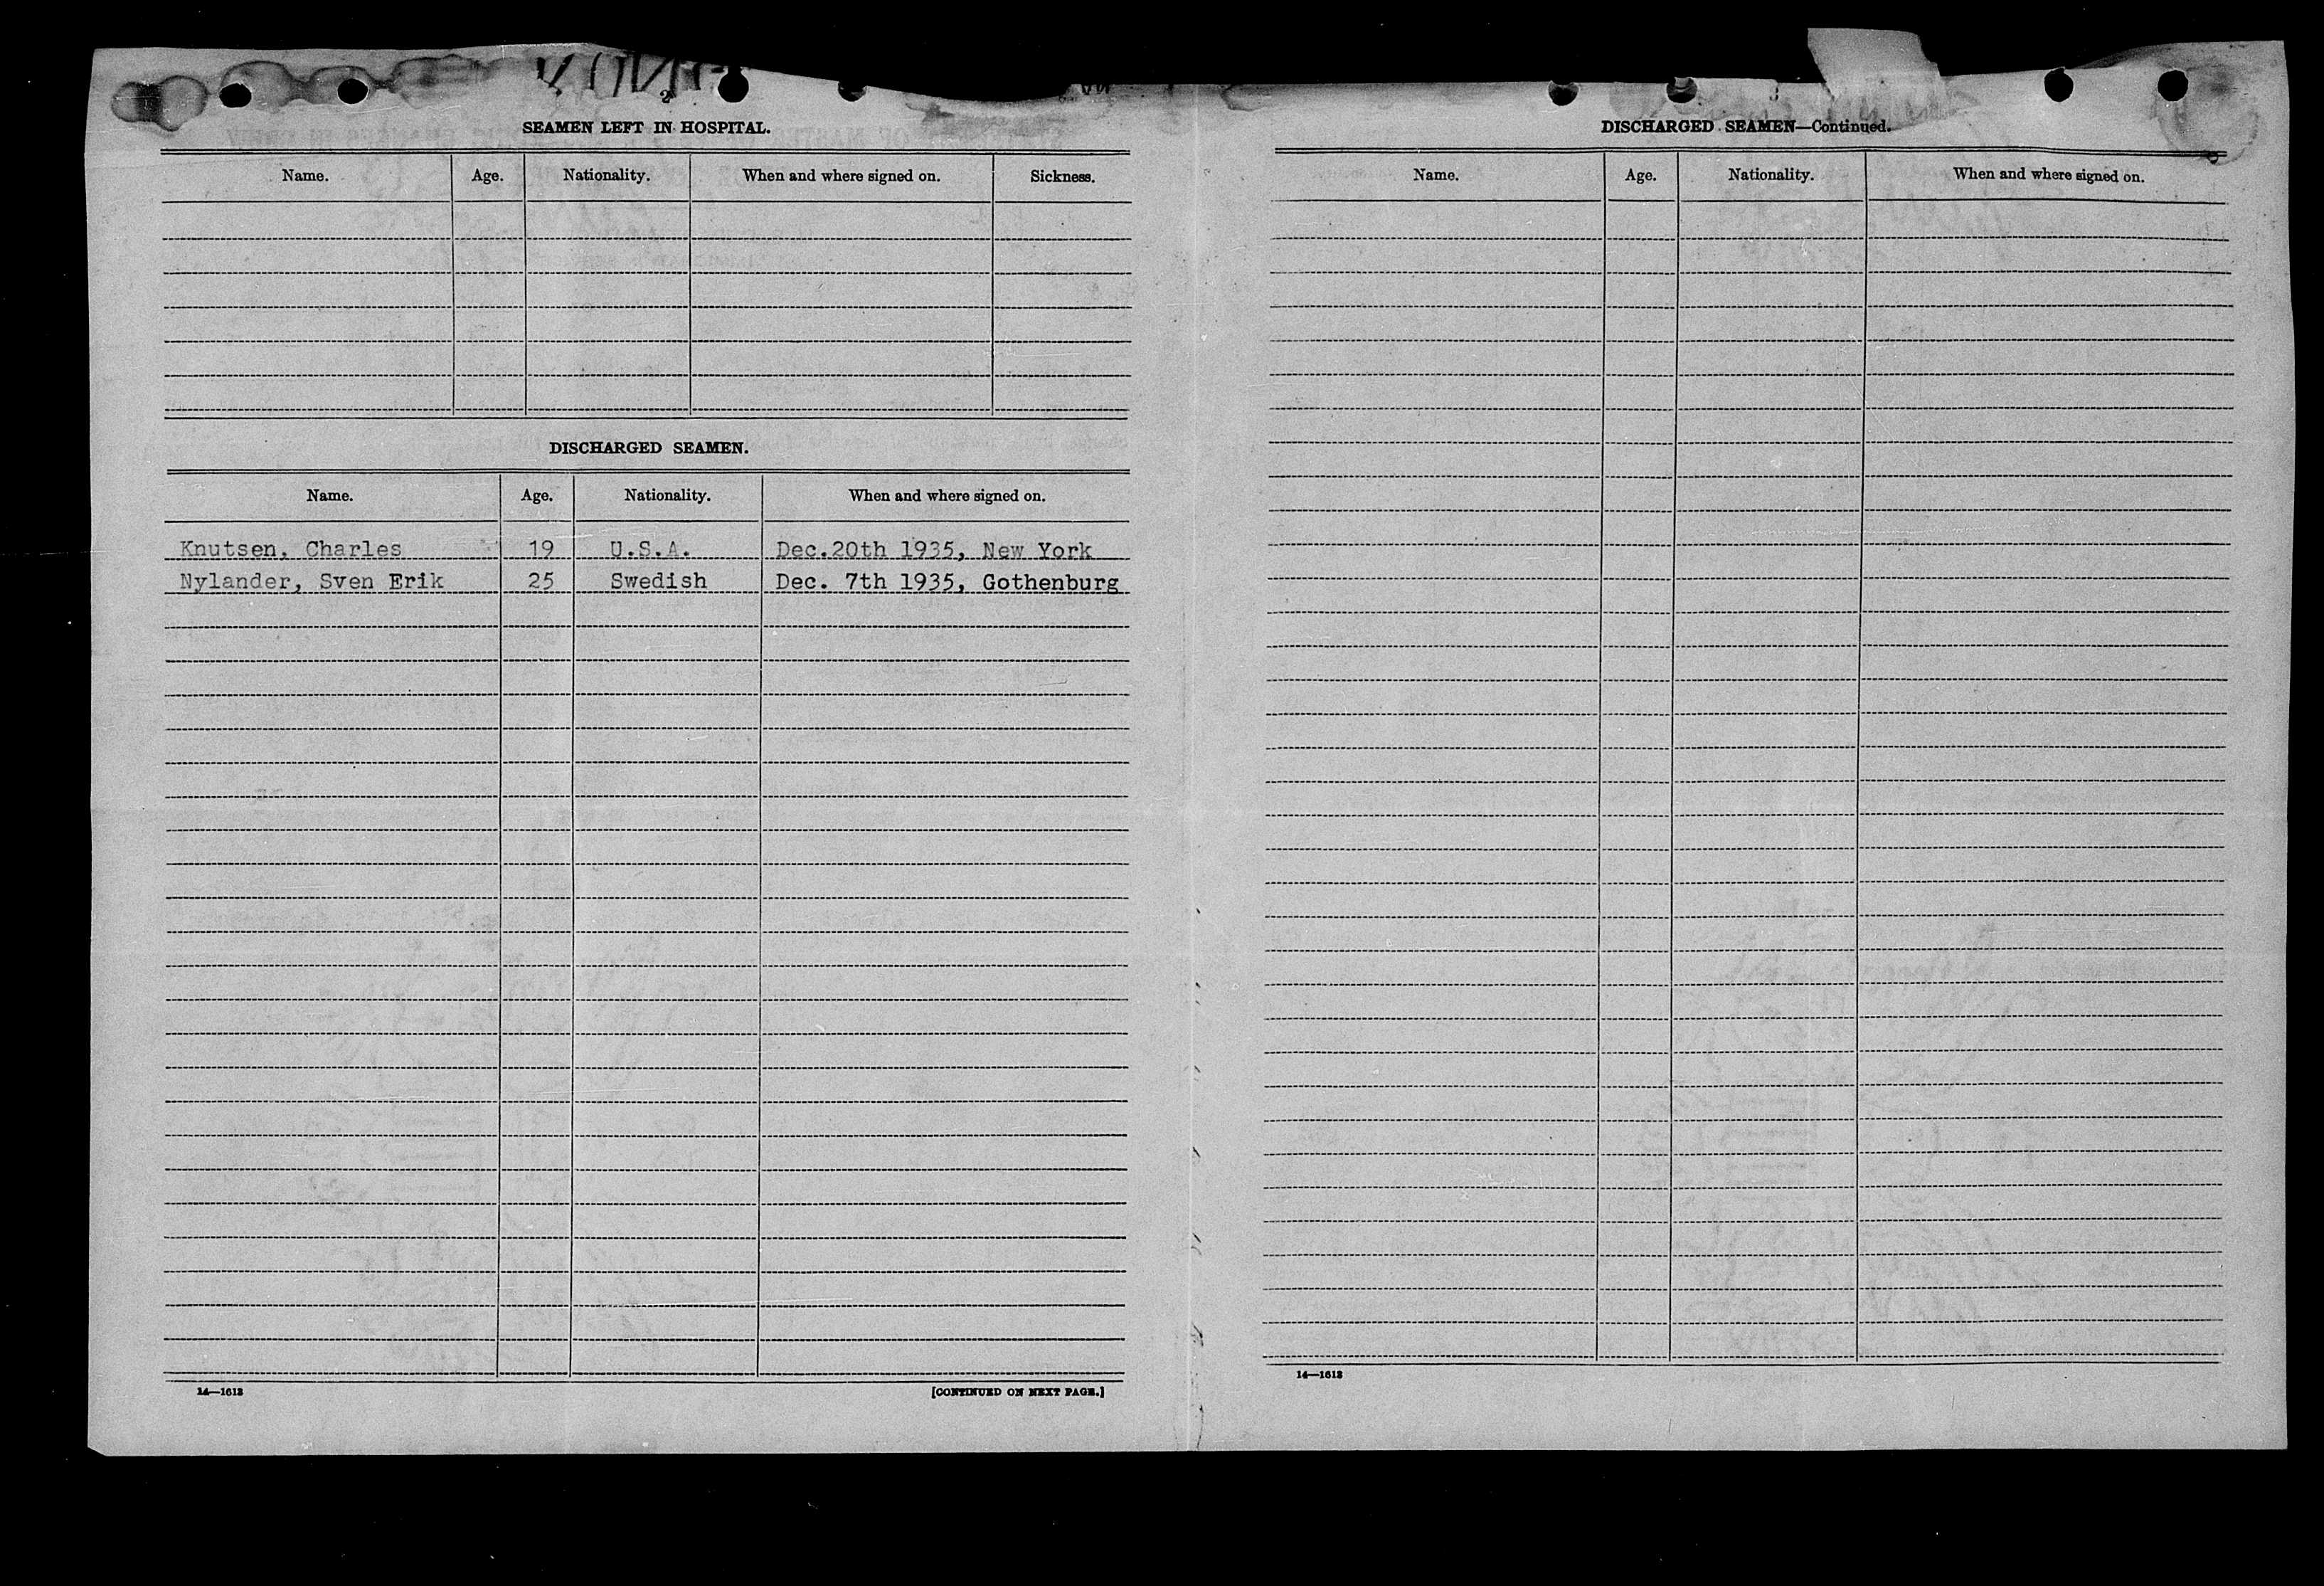 2
SEAMEN LEFT IN HOSPITAL.
Name. Age. Nationality. When and where signed on. Sickness.
DISCHARGED SEAMEN.
Name. Age. Nationality. When and where signed on.
Knutsen, Charles 19 U.S.A. Dec.20th 1935, New York
Nylander, Sven Erik 25 Swedish Dec. 7th 1935, Gothenburg
14—1613
[CONTINUED ON NEXT PAGE.]
DISCHARGED SEAMEN—Continued.
Name. Age. Nationality. When and where signed on.
14—1613